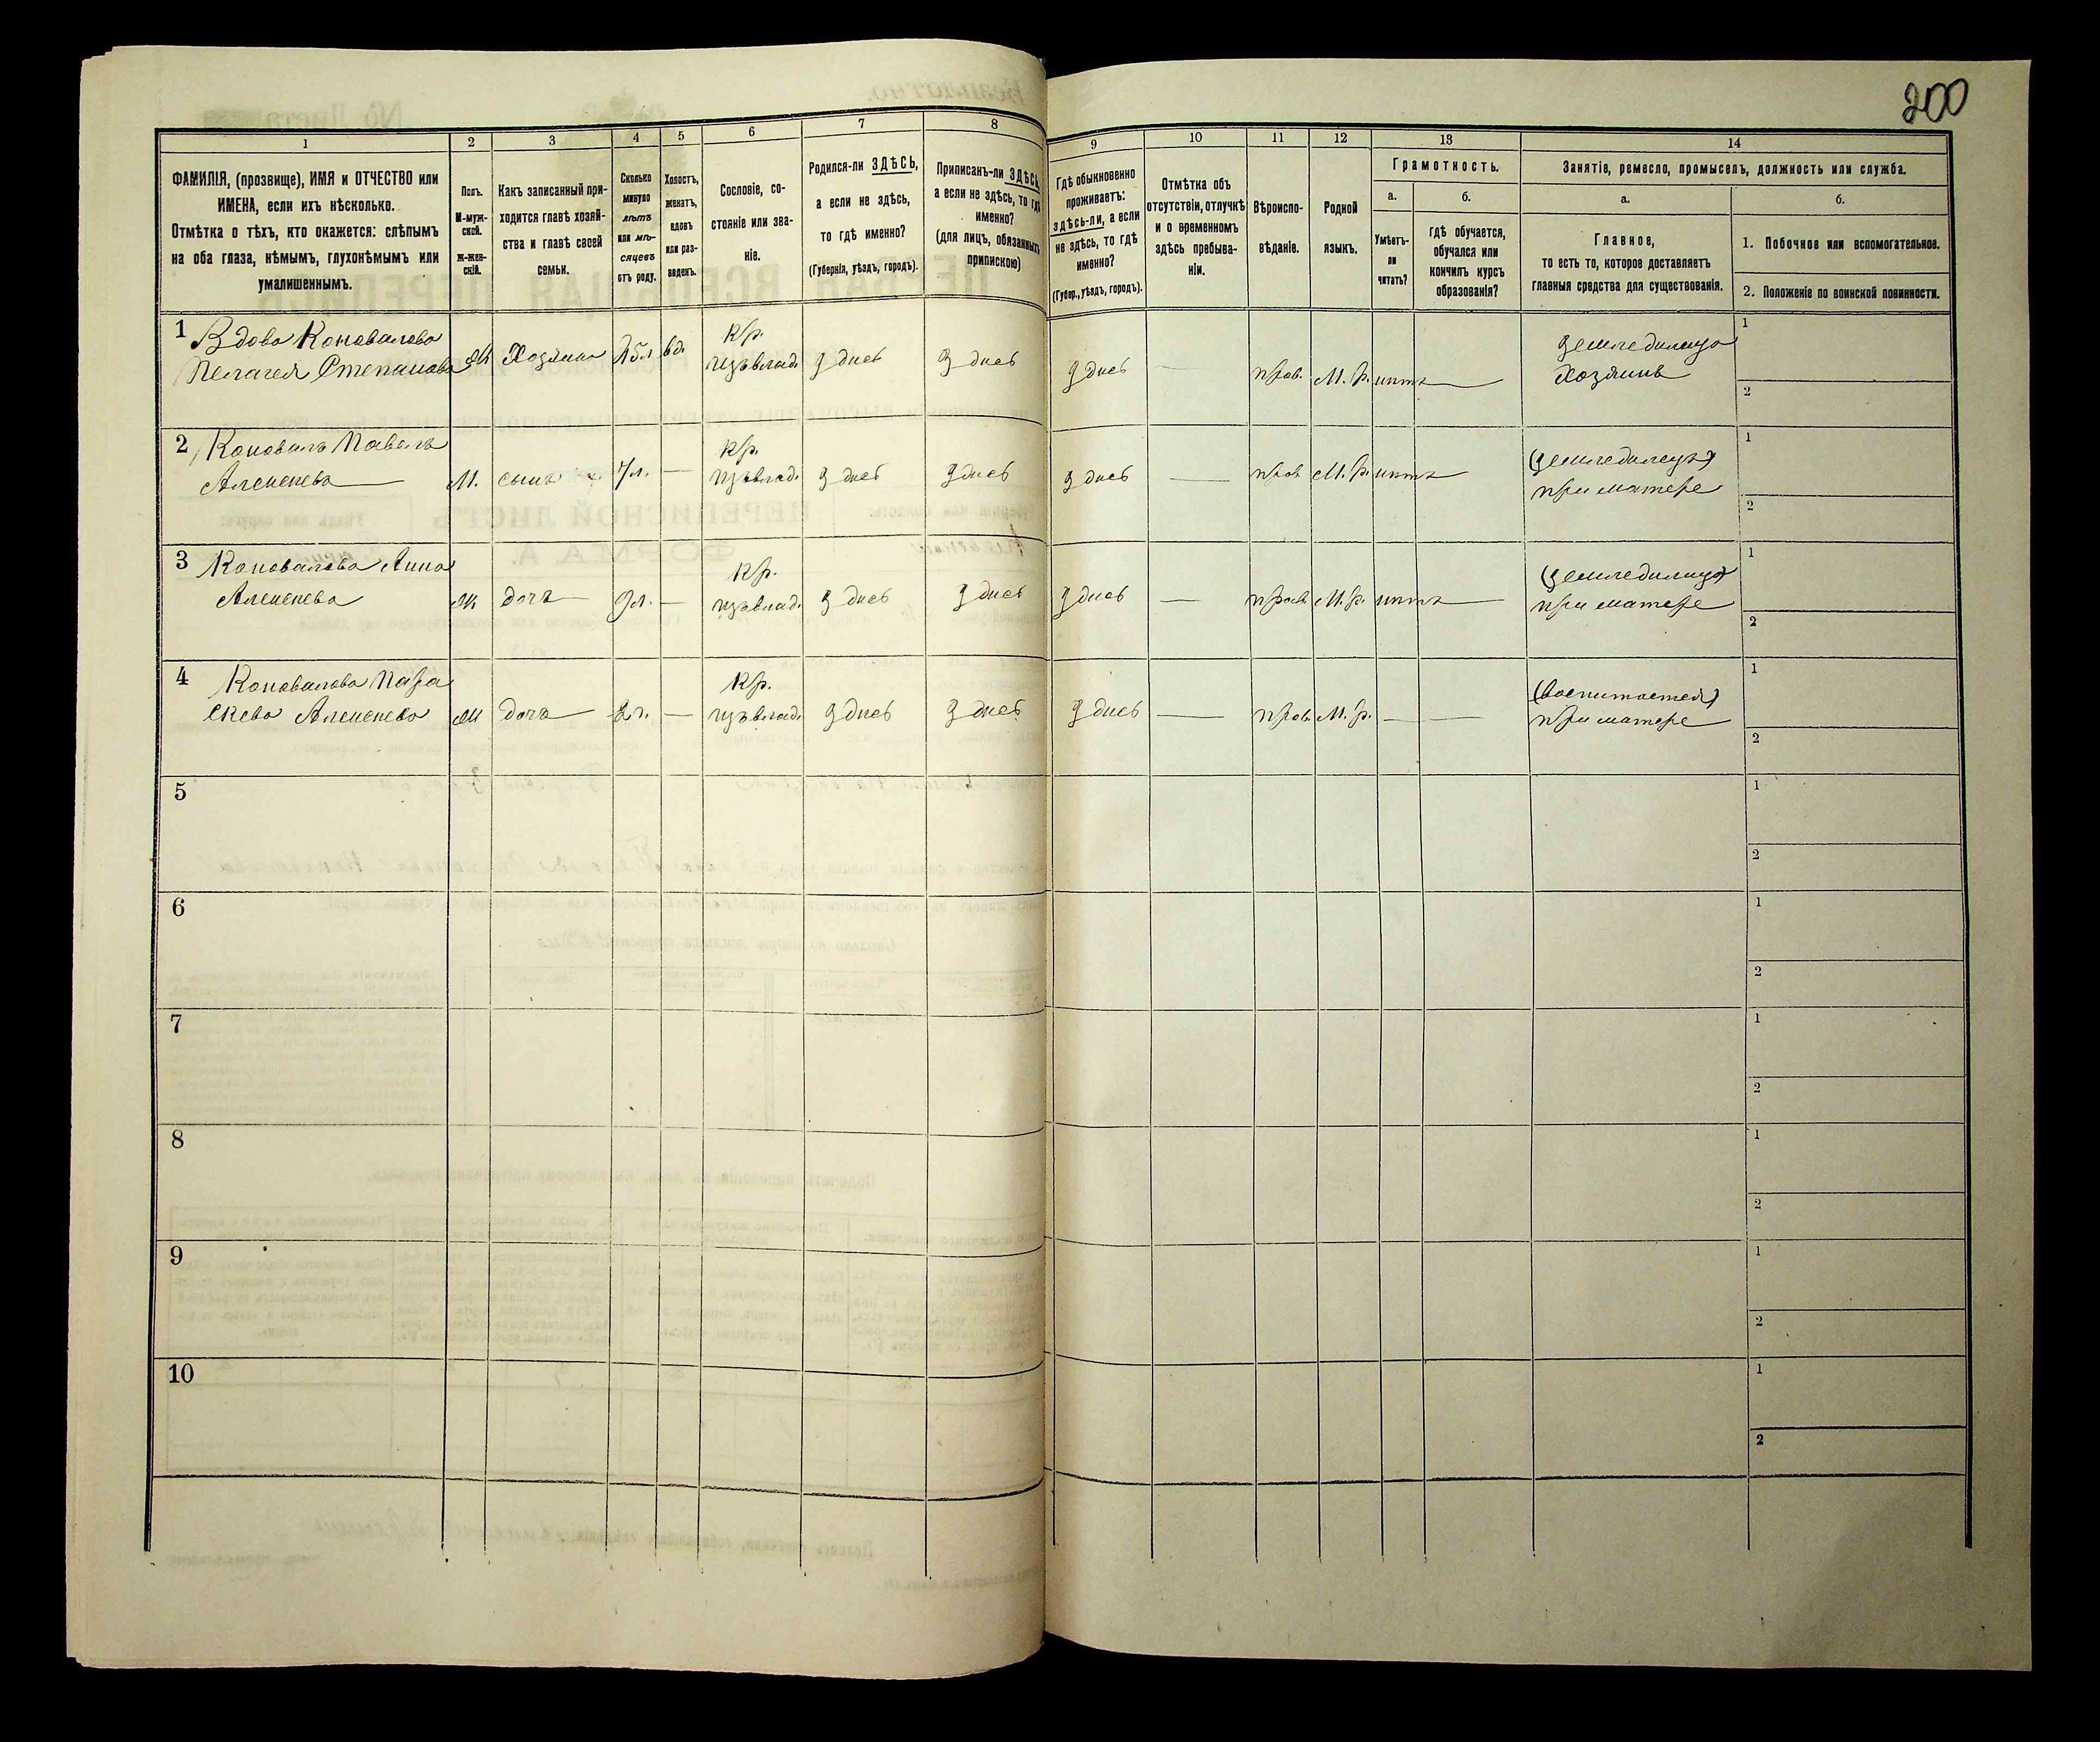 200
1
2
3
4
5
6
7
8
9
10
11
12
13
14
ФАМИЛІЯ, (прозвище), ИМЯ и ОТЧЕСТВО или
ИМЕНА, если ихъ нѣсколько.
Отмѣтка о тѣхъ, кто окажется: слѣпымъ
на оба глаза, нѣмымъ, глухонѣмымъ или
умалишеннымъ.
Полъ.
М-муж-
ской.
Ж-жен-
скій.
Какъ записанный при-
ходится главѣ хозяй-
ства и главѣ своей
семьи.
Сколько
минуло
лѣтъ
или мѣ-
сяцевъ
отъ роду.
Холостъ,
женатъ,
вдовъ
или раз-
веденъ.
Сословіе, со-
стояніе или зва-
ніе.
Родился-ли ЗДѢСЬ,
а если не здѣсь,
то гдѣ именно?
(Губернія, уѣздъ, городъ).
Приписанъ-ли ЗДѢСЬ,
а если не здѣсь, то гдѣ
именно?
(для лицъ, обязанныхъ
припискою)
Гдѣ обыкновенно
проживаетъ:
здѣсь-ли, а если
не здѣсь, то гдѣ
именно?
(Губер., уѣздъ, городъ).
Отмѣтка объ
отсутствіи, отлучкѣ
и о временномъ
здѣсь пребыва-
ніи.
Вѣроиспо-
вѣданіе.
Родной
языкъ.
Грамотность.
а.
б.
Умѣетъ-
ли
читать?
гдѣ обучается,
обучался или
кончилъ курсъ
образованія?
Занятіе, ремесло, промыселъ, должность или служба.
а.
б.
Главное,
то есть то, которое доставляетъ
главныя средства для существованія.
1. Побочное или вспомогательное.
2. Положеніе по воинской повинности.
1 Вдова Коновалова Кр. земледелица 1
Пелагея Степанова Ж Хозяинъ вд. изъ влад. здесь здесь здесь — прав. М. р. нетъ — хозяинъ
2
2 Коновалъ Павелъ Кр. (земледелецъ) 1
М. сынъ 7 л. — изъ влад. здесь здесь здесь — прав М. р. нетъ при матере
2
3 Коновалова Анна Кр. (земледелица) 1
Ж дочь — 9 л. — изъ влад. здесь здесь здесь — прав М. р. нетъ — при матере
2
4 Коновалова Пара Кр. (воспитается) 1
скева Ж дочь — 2 г. — изъ влад. здесь здесь здесь — прав. М. р. — — при матере
2
5 1
2
6 1
2
7 1
2
8 1
2
9 1
2
10 1
2